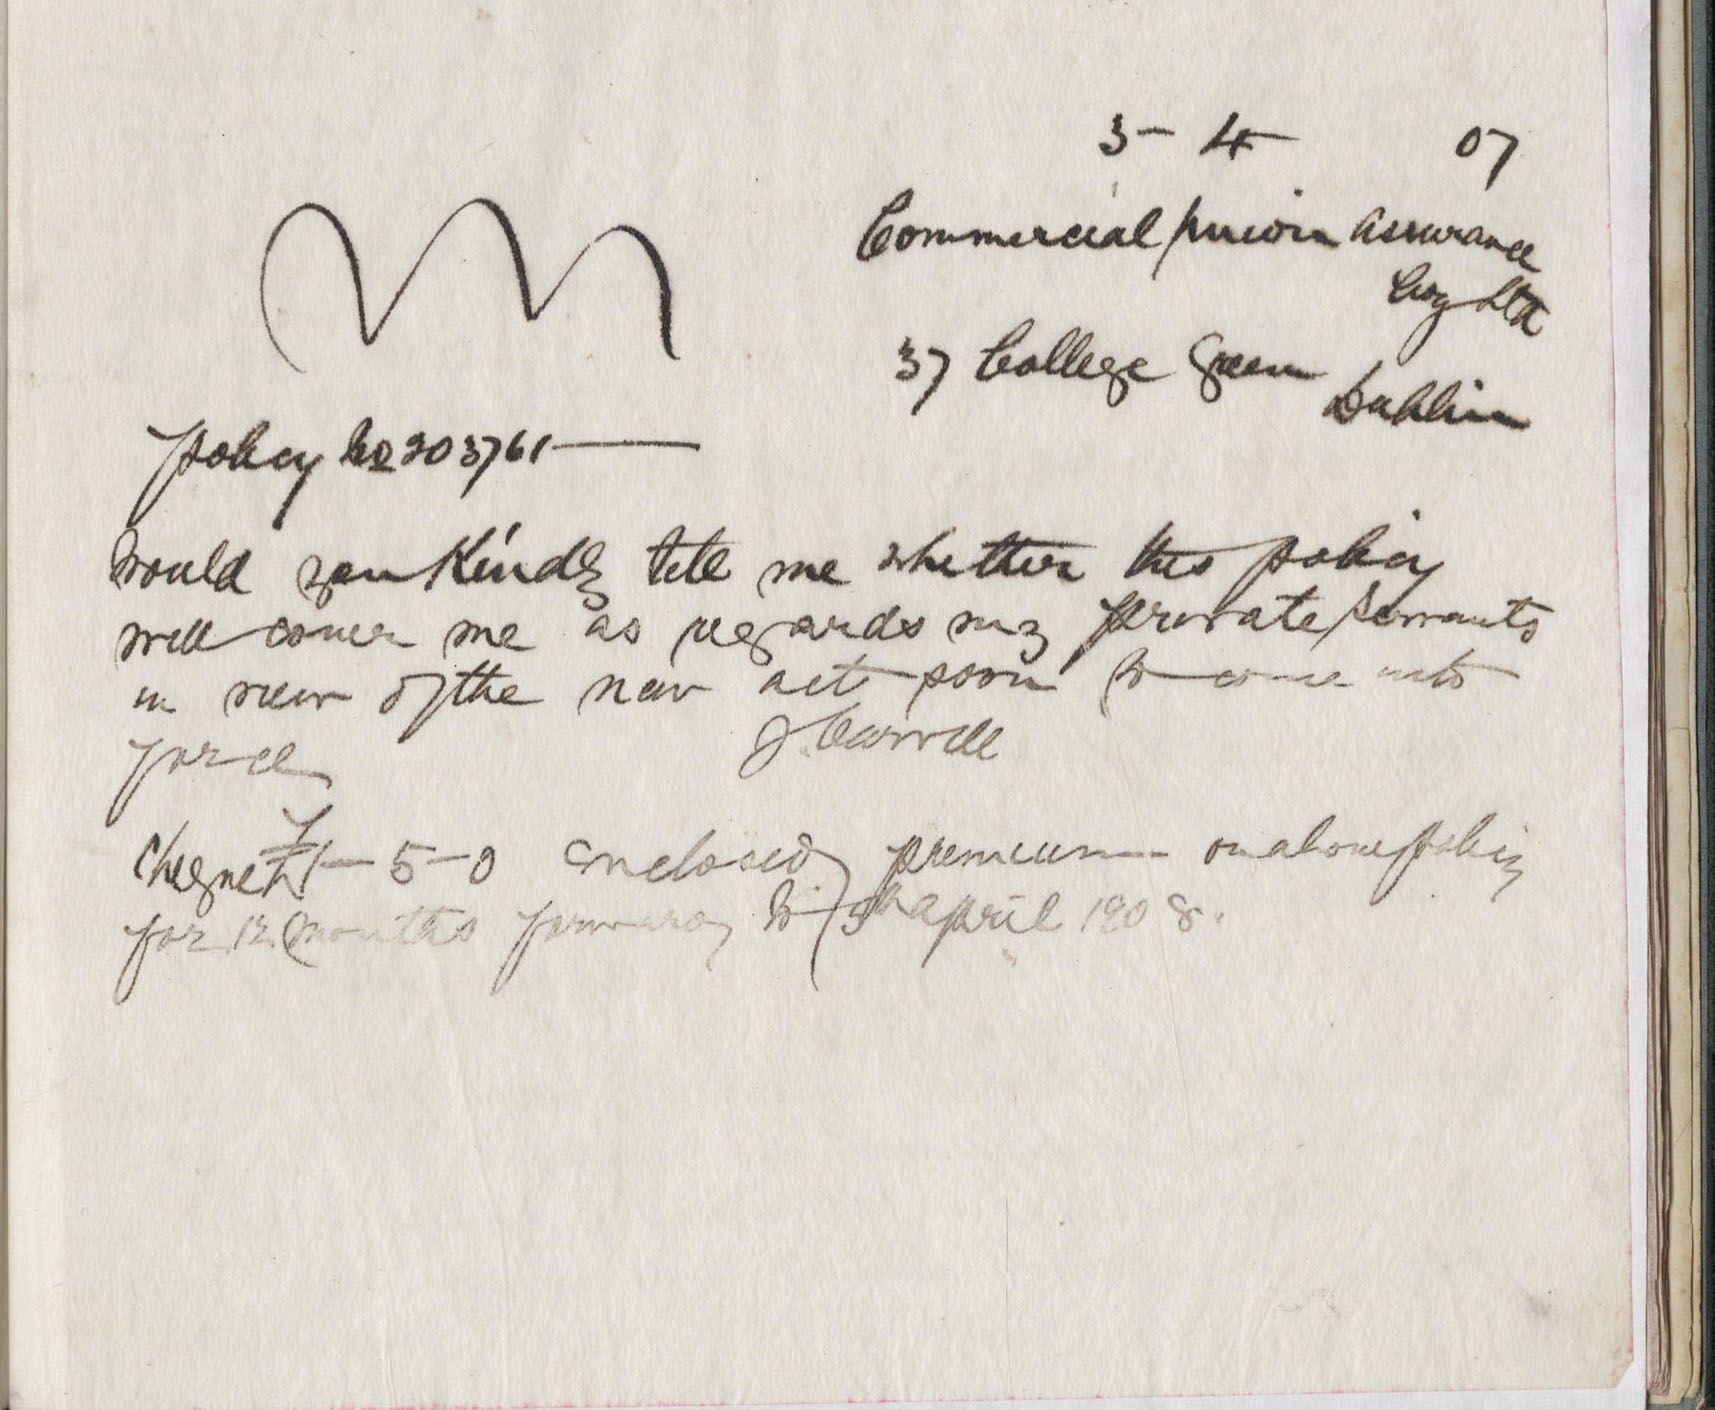 3 - 4 07
Commercial Union Assurance
Coy Ltd
37 College Green
Dublin
Policy No 203761
Would you Kindly tell me whether this policy
will cover me as regards my private servants
in view of the new act soon to come into
force J Carroll
Cheque £1 - 5 - 0 enclosed premium on above policy
for 12 months forward to 5th April 1908.